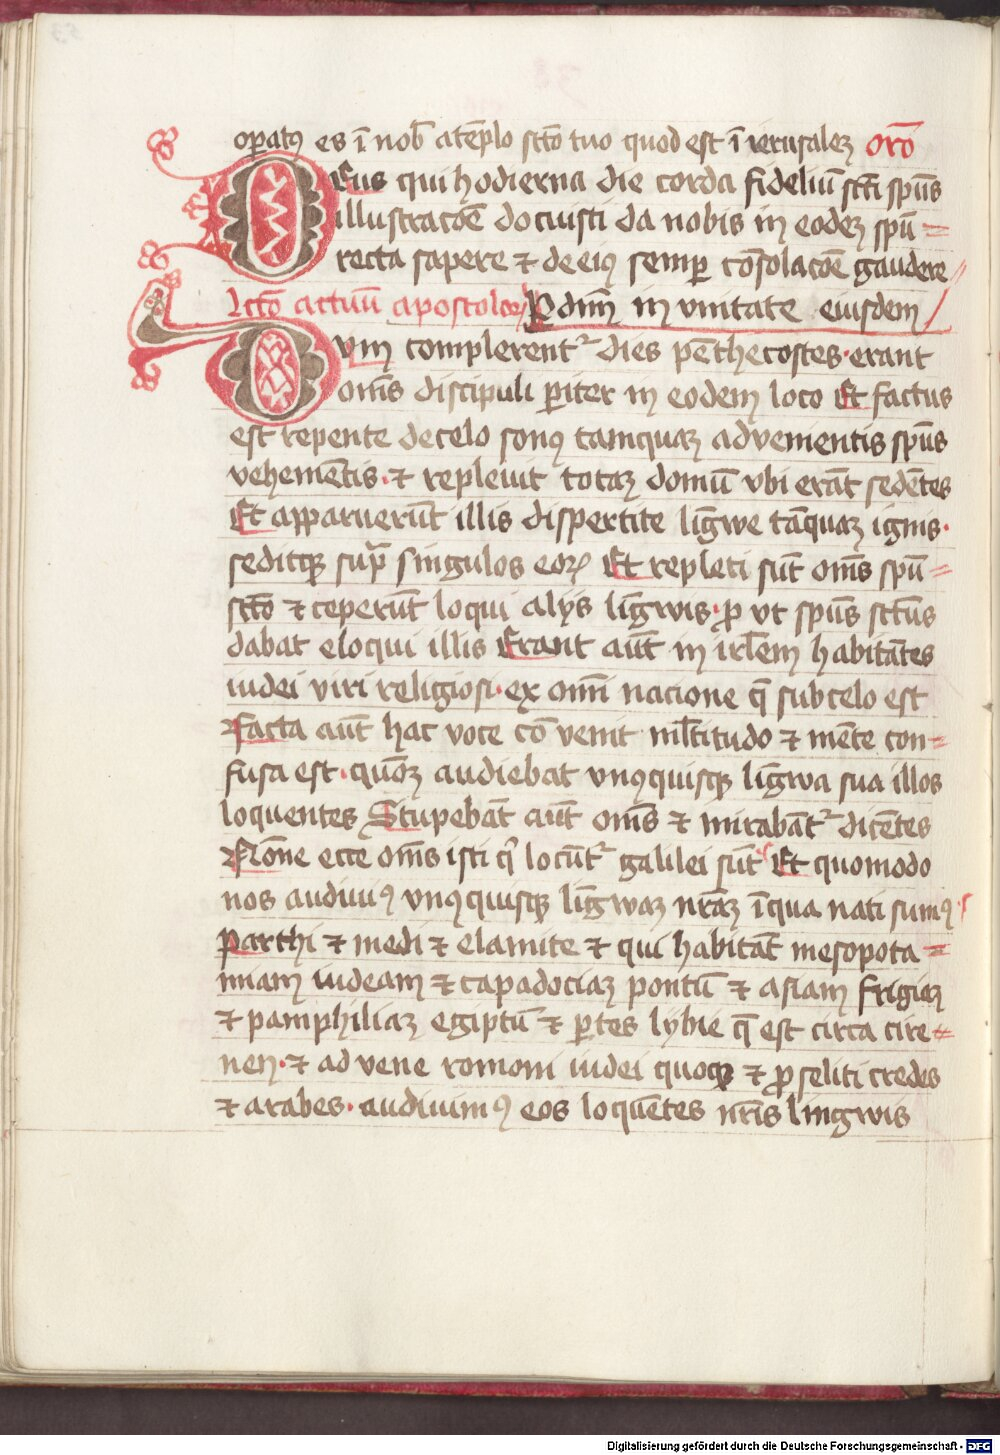 opatꝰ es ī nob̄ a tēplo sct̄o tuo quod est ī ierusaleꝫ or̄o
DEus qui hodierna die corda fideliū sct̄i spūs
illustracōe docuisti da nobis in eodeꝫ spū
recta sapere ⁊ de eiꝰ semꝑ cōsolacōe gaudere
Lctō actuū apostoloꝝ P dn̄m in vnitate eiusdem
Dvm complerentᷣ dies pēthecostes erant
om̄s discipuli ꝑiter in eodem loco Et factus
est repente de celo sonꝰ tamquaꝫ advenientis spūs
vehemētis ⁊ repleuit totaꝫ domū vbi erāt sedētes
Et apparuerūt illis dispertite līgwe tāquaꝫ ignis
seditqꝫ supͣ singulos eoꝝ Et repleti sūt om̄s spū
sct̄o ⁊ ceperūt loqui alijs līgwis ꝓ vt spūs sctūs
dabat eloqui illis Erant aūt in irl̄em habitātes
iudei viri religiosi ex om̄i nacione q̄ sub celo est
Facta aūt hac voce cōvenit ml̄titudo ⁊ mēte con
fusa est quōꝫ audiebat vnꝰquisqꝫ līgwa sua illos
loquentes Stupebāt aūt om̄s ⁊ mirabātᷣ dicētes
Nōne ecce om̄s isti qͥ locūtᷣ galilei sūt Et quomodo
nos audiuiꝰ vnꝰquisqꝫ līgwaꝫ nr̄aꝫ ī qua nati sumꝰ
Parthi ⁊ medi ⁊ elamite ⁊ qui habitāt mesopota
miam iudeam ⁊ capadociaꝫ pontū ⁊ asiam frigiaꝫ
⁊ pamphiliaꝫ egiptū ⁊ ꝑtes lybie q̄ est circa cire
nen ⁊ advene romoni iudei quoqꝫ ⁊ ꝓseliti credes
⁊ arabes audiuimꝰ eos loquētes nr̄is lingwis
Digitalisierung gefördert durch die Deutsche Forschungsgemeinschaft - DFG